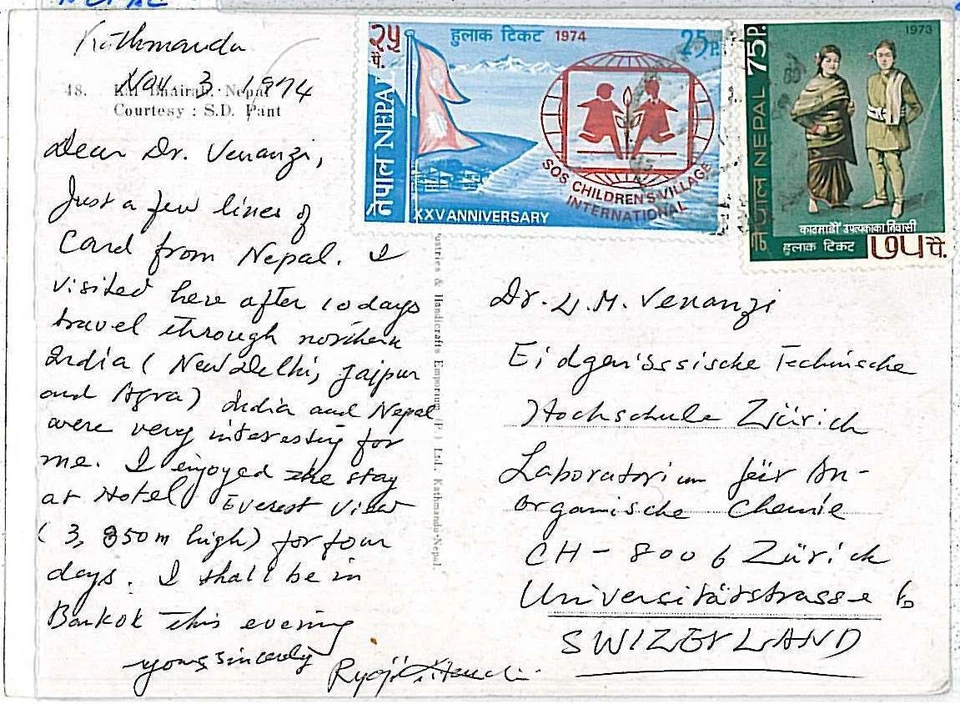 NEPAL
Kathmandu
Nov. 3. 1974
48. Bhairab, Nepal
Courtesy : S.D. Pant
Dear Dr. Venanzi,
Just a few lines of
Card from Nepal. I
visited here after 10 days
travel through northern
India (New Delhi, Jaipur
and Agra) India and Nepal
were very interesting for
me. I enjoyed the stay
at Hotel Everest View
(3,850m high) for four
days. I shall be in
Bankok this evening
yours sincerely
Ryoji
२५ पै.
हुलाक टिकट 1974
25P.
नेपाल NEPAL
SOS CHILDREN'S VILLAGE
INTERNATIONAL
XXV ANNIVERSARY
1973
नेपाल NEPAL 75P.
काठमाडौं उपत्यकाका निवासी
हुलाक टिकट ७५ पै.
ustries & Handicrafts Emporium (P.) Ltd. Kathmandu-Nepal.
Dr. L.M. Venanzi
Eidgenössische Technische
Hochschule Zürich
Laboratorium für An-
organische Chemie
CH-8006 Zürich
Universitätstrasse 6
SWIZERLAND